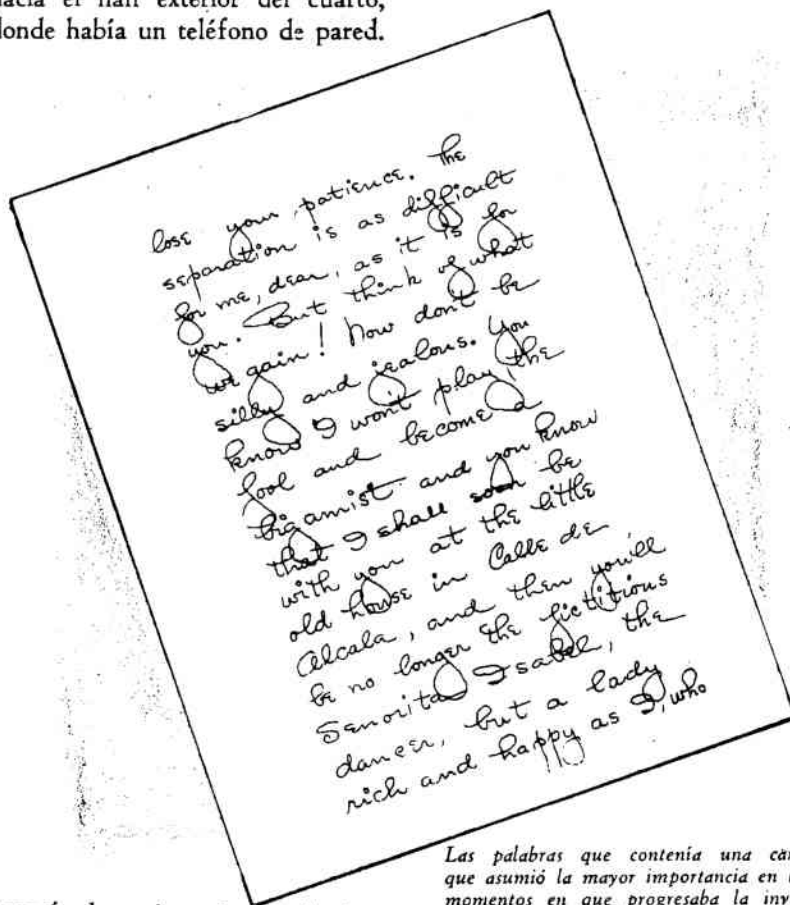 hacia el hall exterior del cuarto,
donde había un teléfono de pared.
lose your patience. The
separation is as difficult
for me, dear, as it is for
you. But think of what
we gain! Now don't be
silly and jealous. You
know I won't play the
fool and become a
bigamist and you know
that I shall soon be
with you at the little
old house in Calle de
Alcala, and then you'll
be no longer the fictitious
Senorita Isabel, the
dancer, but a lady
rich and happy as I, who
Las palabras que contenía una
que asumió la mayor importancia en
momentos en que progresaba la